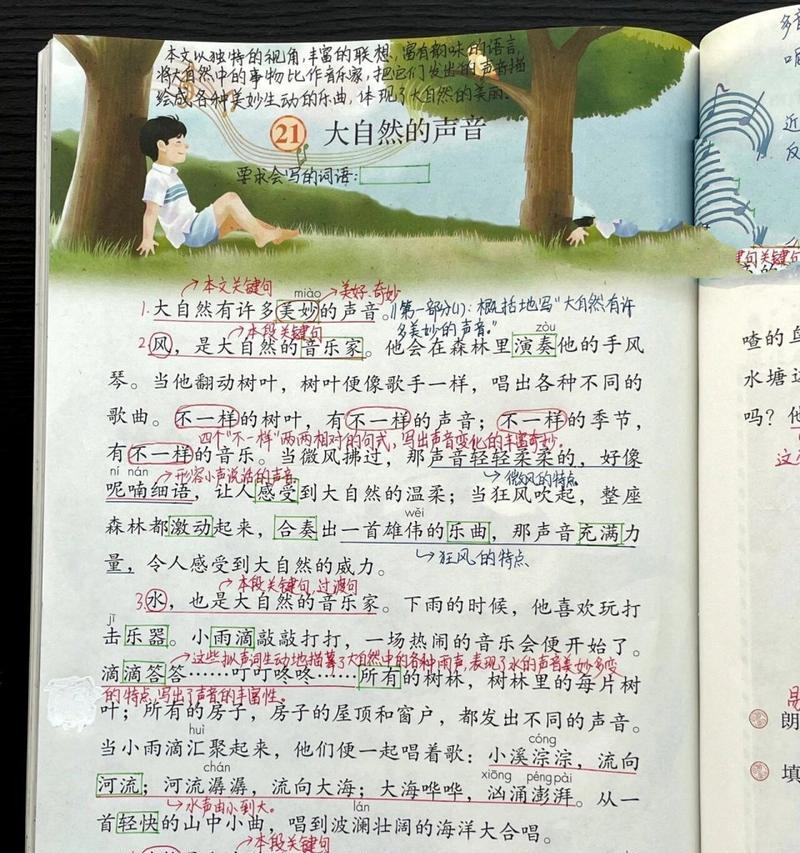 本文以独特的视角,丰富的联想,富有韵味的语言,
将大自然中的事物比作音乐家,把它们发出的声音描
绘成各种美妙生动的乐曲,体现了大自然的美丽。
21 大自然的声音
要求会写的词语:
本文关键句
miào
美好、奇妙
1.大自然有许多美妙的声音。
第一部分(1):概括地写“大自然有许
多美妙的声音。”
本段关键句
zòu
2.风,是大自然的音乐家。他会在森林里演奏他的手风
琴。当他翻动树叶,树叶便像歌手一样,唱出各种不同的
歌曲。不一样的树叶,有不一样的声音;不一样的季节,
四个“不一样”两两相对的句式,写出声音变化的丰富奇妙。
有不一样的音乐。当微风拂过,那声音轻轻柔柔的,好像
ní nán
形容小声说话的声音
微风的特点
呢喃细语,让人感受到大自然的温柔;当狂风吹起,整座
wěi
森林都激动起来,合奏出一首雄伟的乐曲,那声音充满力
狂风的特点
量,令人感受到大自然的威力。
本段关键句,过渡句
3.水,也是大自然的音乐家。下雨的时候,他喜欢玩打
jī
击乐器。小雨滴敲敲打打,一场热闹的音乐会便开始了。
这些拟声词生动地描摹了大自然中的各种雨声,表现了水的声音美妙多变
滴滴答答……叮叮咚咚……所有的树林,树林里的每片树
的特点,写出了声音的丰富性。
叶;所有的房子,房子的屋顶和窗户,都发出不同的声音。
huì
cóng
当小雨滴汇聚起来,他们便一起唱着歌:小溪淙淙,流向
chán
xiōng péng pài
河流;河流潺潺,流向大海;大海哗哗,汹涌澎湃。从一
水声由小到大。
lán
首轻快的山中小曲,唱到波澜壮阔的海洋大合唱。
本段关键句
近
反
键句
喳的鸟
水塘边
吗?他
这
朗
填